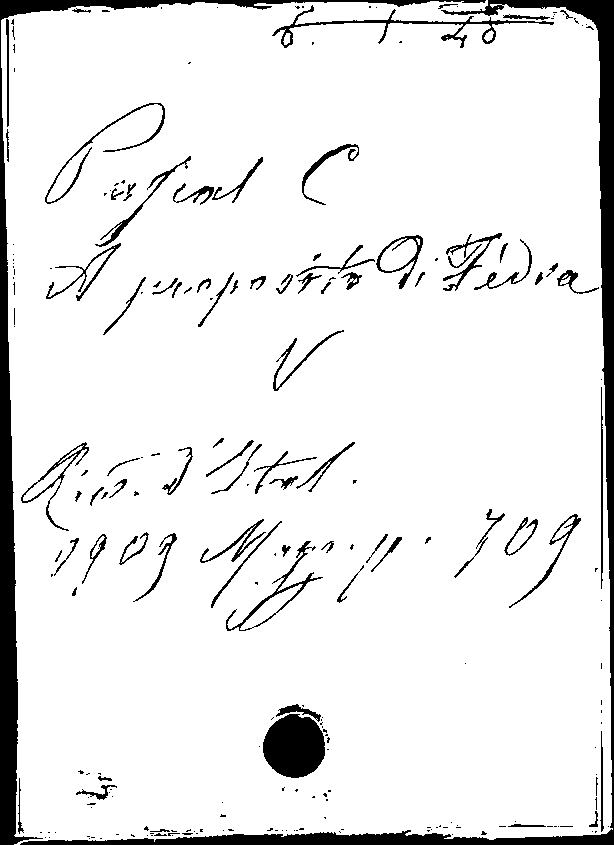 6. 1. 48
Pascal C
A proposito di Fedra
V
Riv. d'Ital.
1909 Magg. p. 709